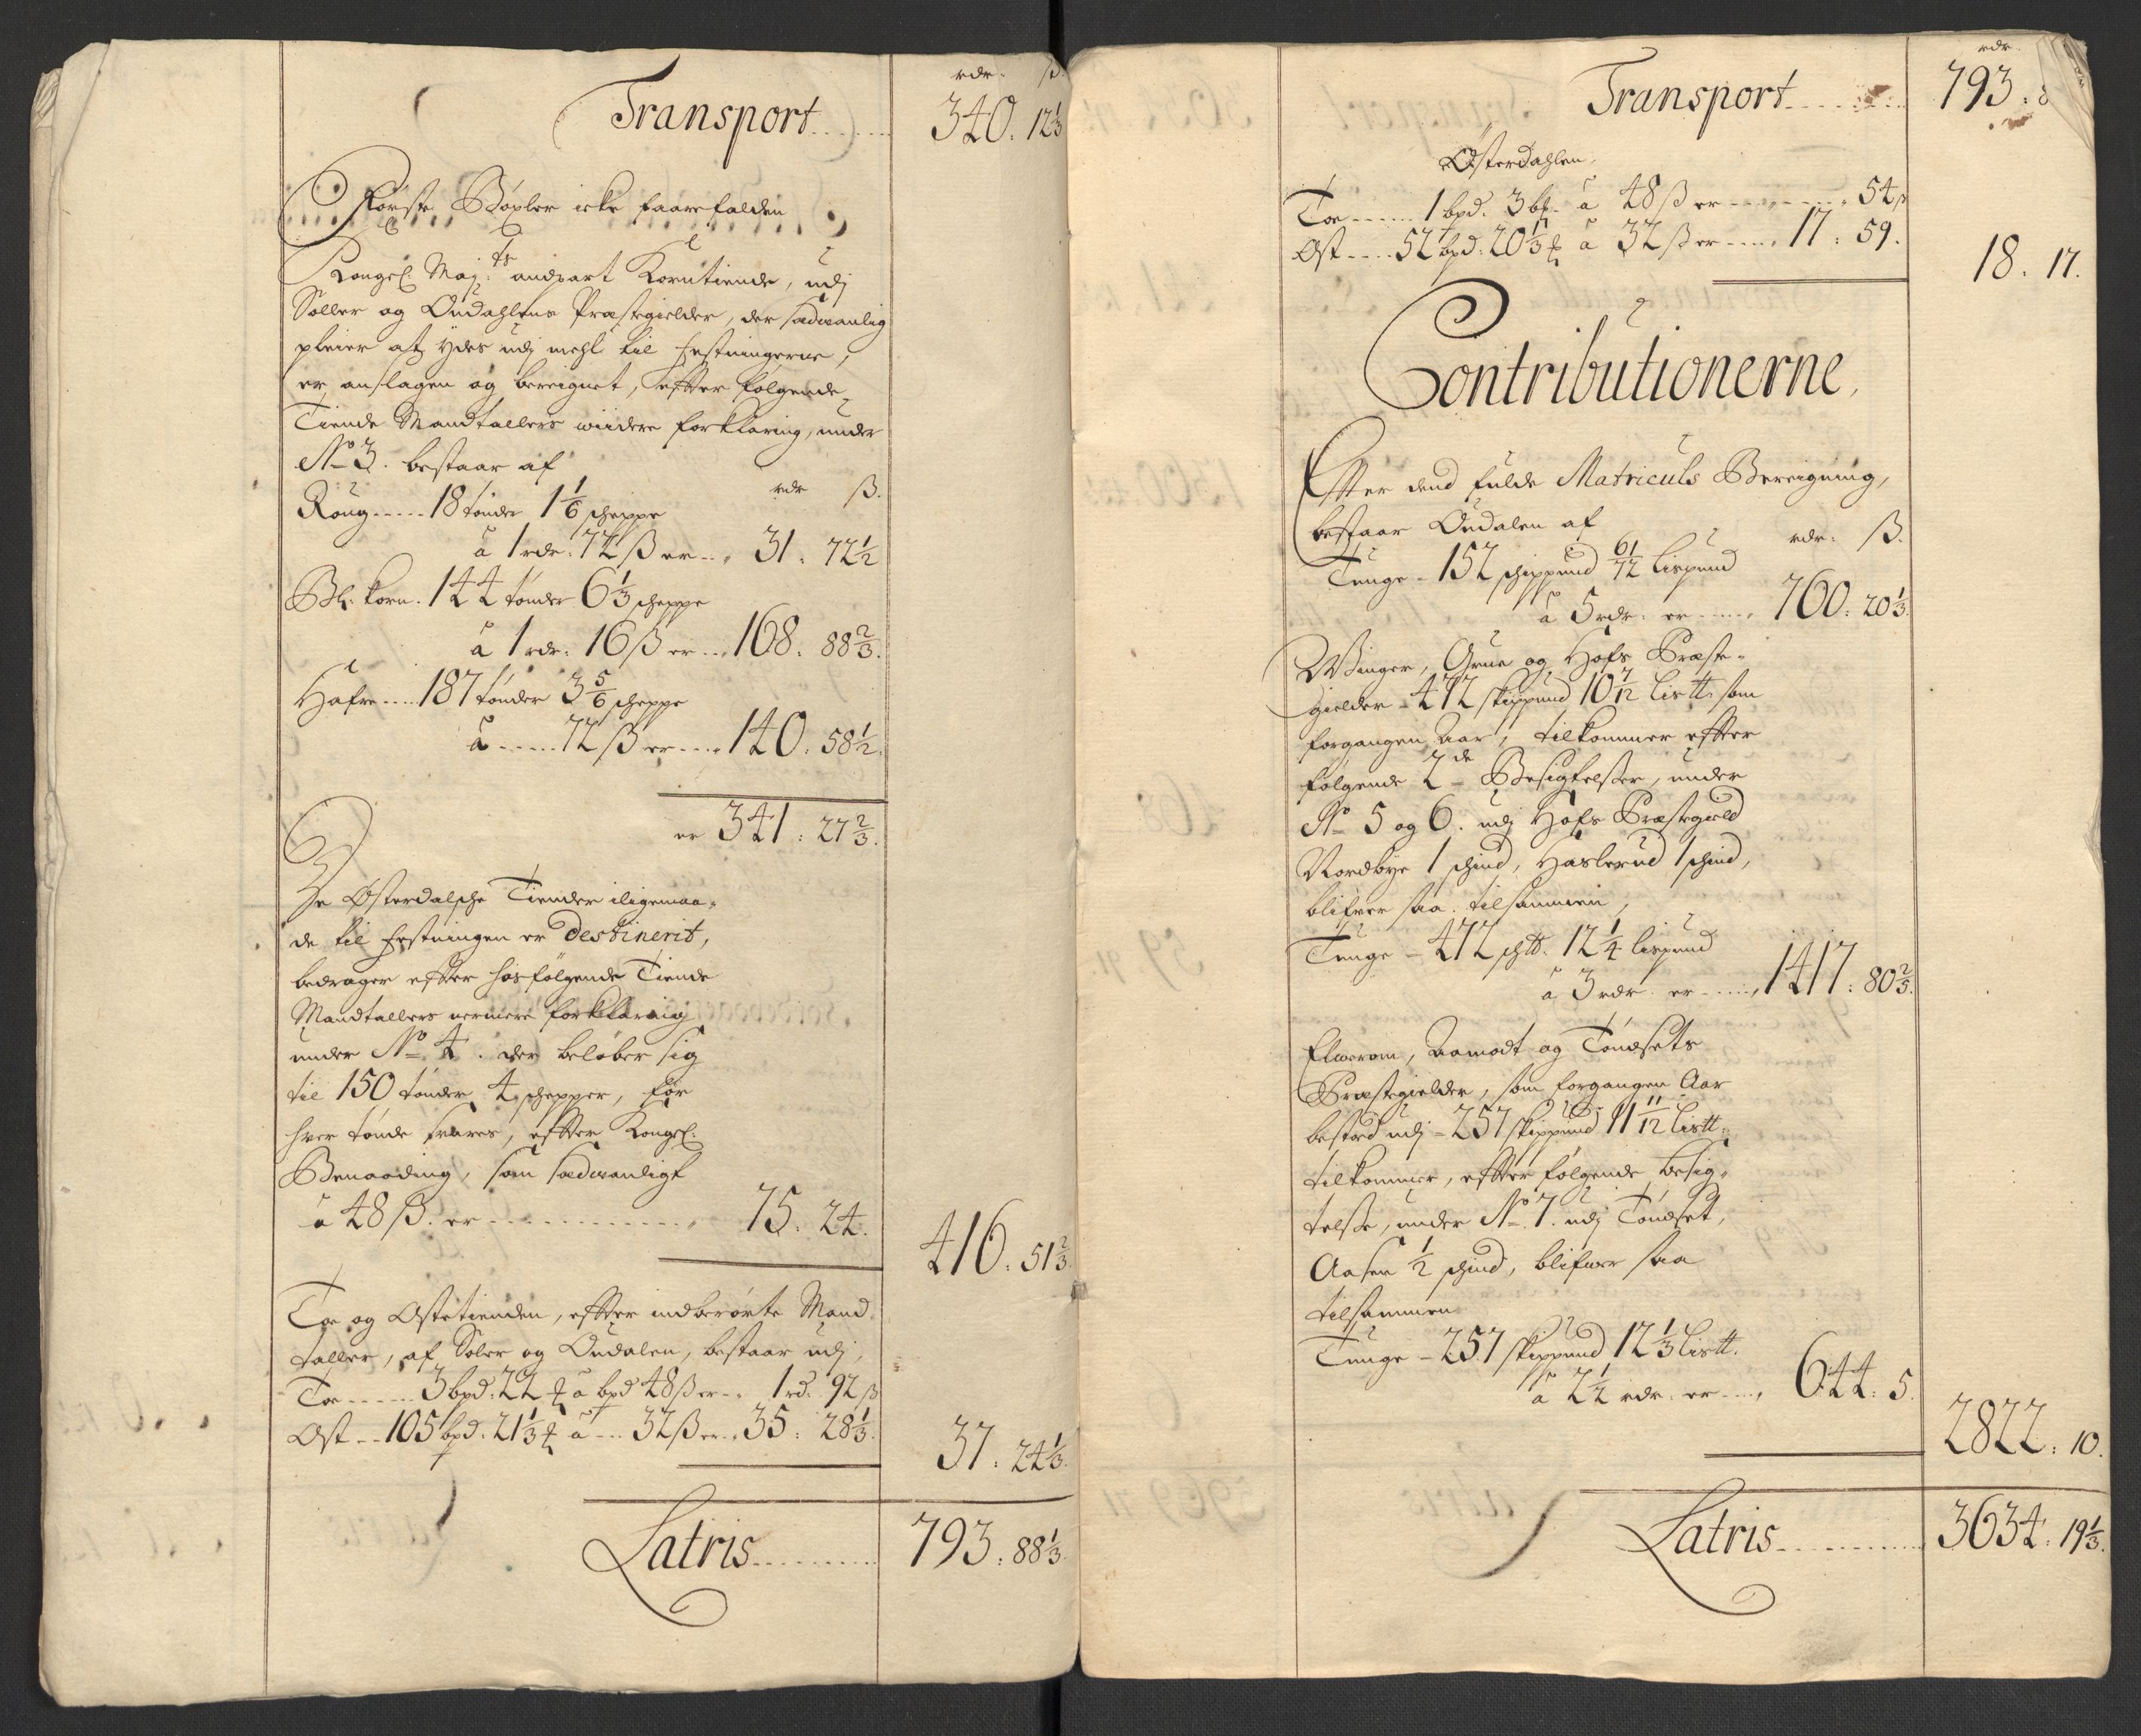 rdr. ß.
Transport ....... 340. 12 1/3
Første Bøxler icke faarefalden
Kongel. Maj:ts andpart Korntiende, udj
Soller og Oudahlens Præstegielder, der sædvanlig
pleier at ydes udj mehl til festningerne,
er anslagen og bereignet, effter følgende
Tiende Mandtallers widere forklaring, under
No 3. bestaar af
rdr ß.
Roug ..... 18 tønder 1 1/6 scheppe
â 1 rdr. 72 ß er ... 31. 72 1/2
Bl. korn. 144 tønder 6 1/3 scheppe
â 1 rdr. 16 ß er ... 168. 88 2/3.
Hafre .... 187 tønder 3 5/6 scheppe
â ..... 72 ß er .... 140. 58 1/2.
er 341: 27 2/3.
De Østerdalsche Tiender iligemaa-
de til festningen er destinerit,
bedrager effter hosfølgende Tiende
Mandtallers nermere forklaring
under No 4. der beløber sig
til 150 tønder 4 schepper, for
hver tønde svares, effter Kongel.
Benaading, som sædvanligt
â 48 ß. er ............ 75. 24.
416. 51 2/3.
Toe og Ostetienden, effter indberørte Mand-
taller, af Soler og Oudalen, bestaar udj,
Toe ...... 3 bpd. 22 ℔ â bpd 48 ß er .. 1 rd. 92 ß
Ost ... 105 bpd. 21 1/3 ℔ â ... 32 ß er .. 35. 28 1/3.
37. 24 1/3.
Latris .......... 793. 88 1/3.
rdr.
Transport ......... 793. 8
Østerdahlen
Toe ...... 1 bpd. 3 ℔ â 48 ß er ........ 54 ß
Ost .... 52 bpd. 20 1/3 ℔ â 32 ß er .... 17. 59.
18. 17.
Contributionerne.
Effter dend fulde Matriculs Bereigning,
bestaar Oudalen af
rdr. ß.
Tunge - 152 schippund 61/72 lispund
â 5 rdr. er ..... 760. 20 1/3.
Winger, Grue og Hofs Præste-
gielder - 472 skippund 10 7/12 list. som
forgangen Aar, tilkommer effter
følgende 2de Besigtelser, under
No 5 og 6. udj Hofs Præstegield
Nordbye 1 schind, Haslerud 1 schind,
blifver saa tilsammen,
Tunge - 472 sch℔. 12 1/4 lispund
â 3 rdr. er ...... 1417. 80 2/5.
Elverom, Aamodt og Tøndsets
Præstegielder, som forgangen Aar
bestod udj - 257 skippund 11 11/12 list.
tilkommer, effter følgende besig-
telse, under No 7. udj Tøndset,
Aasen 1/2 schind, blifver saa
tilsammen
Tunge - 257 skippund 12 1/3 list.
â 2 1/2 rdr. er ..... 644. 5.
2822. 10.
Latris ........... 3634. 19 1/3.